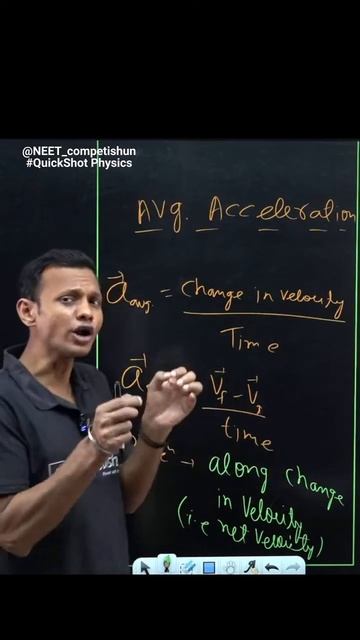 @NEET_competishun
#QuickShot Physics
Avg. Acceleration
a⃗avg. = Change in velocity
Time
a⃗
V⃗f - V⃗i
time
→ along change
in velocity
(i.e net velocity)